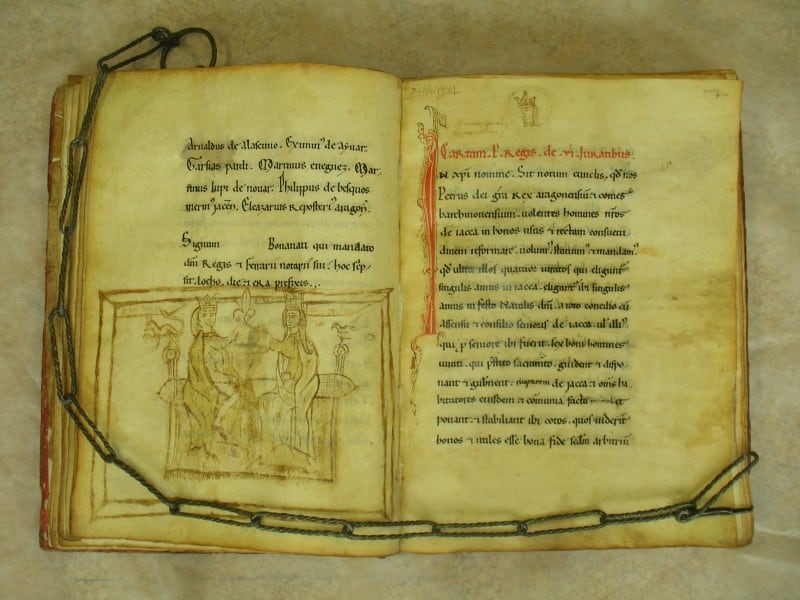 Arnaldus de Alascuno. Eximin' de aysuar.
Garsias pardi. Martinus eneguez. Mar-
tinus lupi de nouar. Philipus de besquos
merin' jaccen. Eleazarius Reposteri' aragon.
Signum Bonanati qui mandato
dni Regis et ferrarii notarii sui. hoc scrip-
sit. Locho. die et era prefixis.
Cartam. P. Regis. de. vi. Iuratibus.
xpi nomine. Sit notum cunctis. qd nos
Petrus dei gra Rex aragonensium et comes
barchinonensium. volentes homines nros
de iacca in bonos usus et rectam consuetu-
dinem reformare. volum' statuim' et mandam'
qd ultra illos quatuor iuratos qui eligunt'
singulis annis in iacca. eligant' ibi singulis
annis in festo Natalis dni. a toto concilio cu
assensu et consilio senioris de iacca ul' illi'
qui p seniore ibi fuerit. sex boni homines
iurati. qui pstito sacramto. guident et dispo-
nant et gubnent de iacca et oms ha-
bitatores eiusdem et comunia facta et
ponant. et stabiliant ibi cotos. quos uiderit
bonos et utiles esse bona fide scdm arbitriu